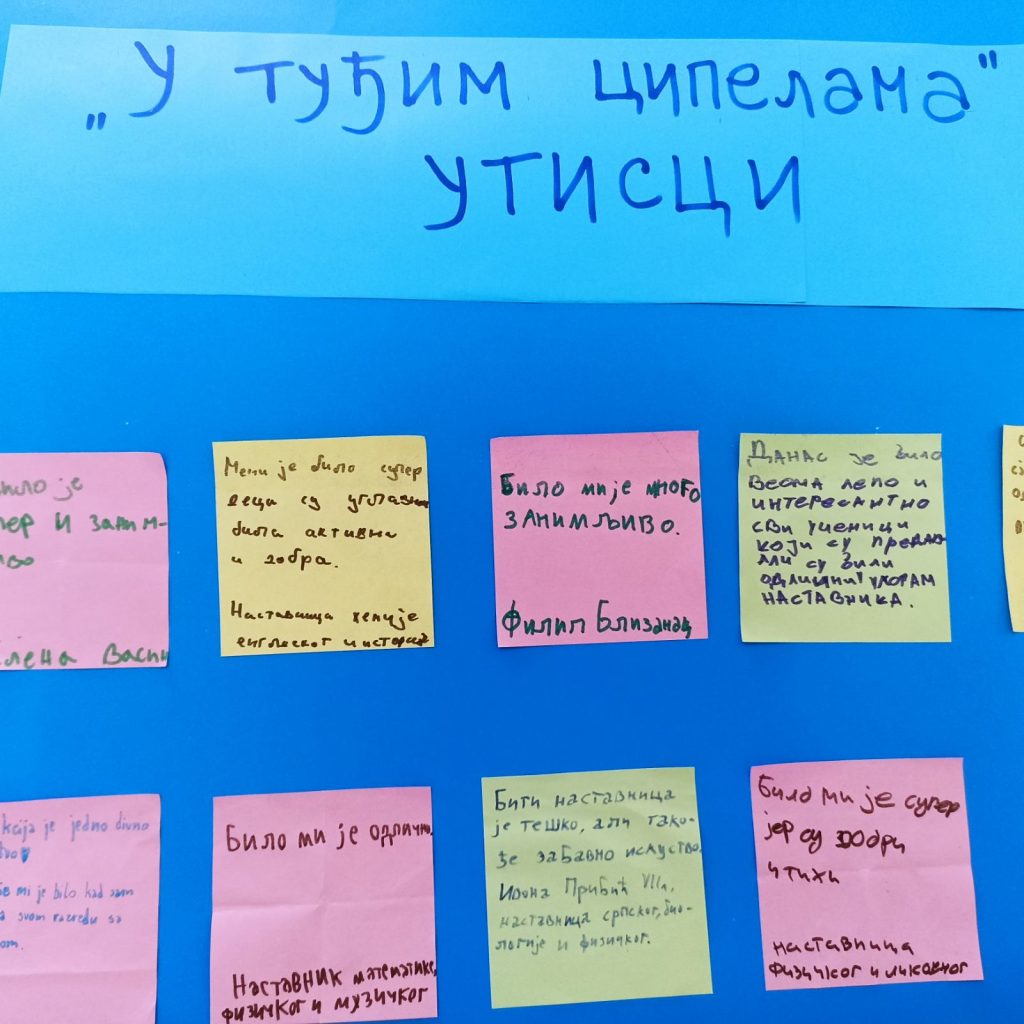 „У туђим ципелама"
УТИСЦИ
је
И заним-
Мени је било супер
деца су углавном
била активна
и добра.
Наставница хемије
енглеског и историје
Било ми је много
занимљиво.
Филип Близанац
Данас је било
веома лепо и
интересантно
сви ученици
који су преда-
али су били
одлични у улогам
наставника.
је jedno divno
mi je bilo kad sam
svom razredu sa
Било ми је одлично.
Наставник математике,
физичког и музичког
Бити наставница
је тешко, али тако-
ђе забавно искуство.
Ивона VIIа,
наставница српског, био-
логије и физичког.
Било ми је супер
јер су добри
и тихи
наставница
физичког и ликовног